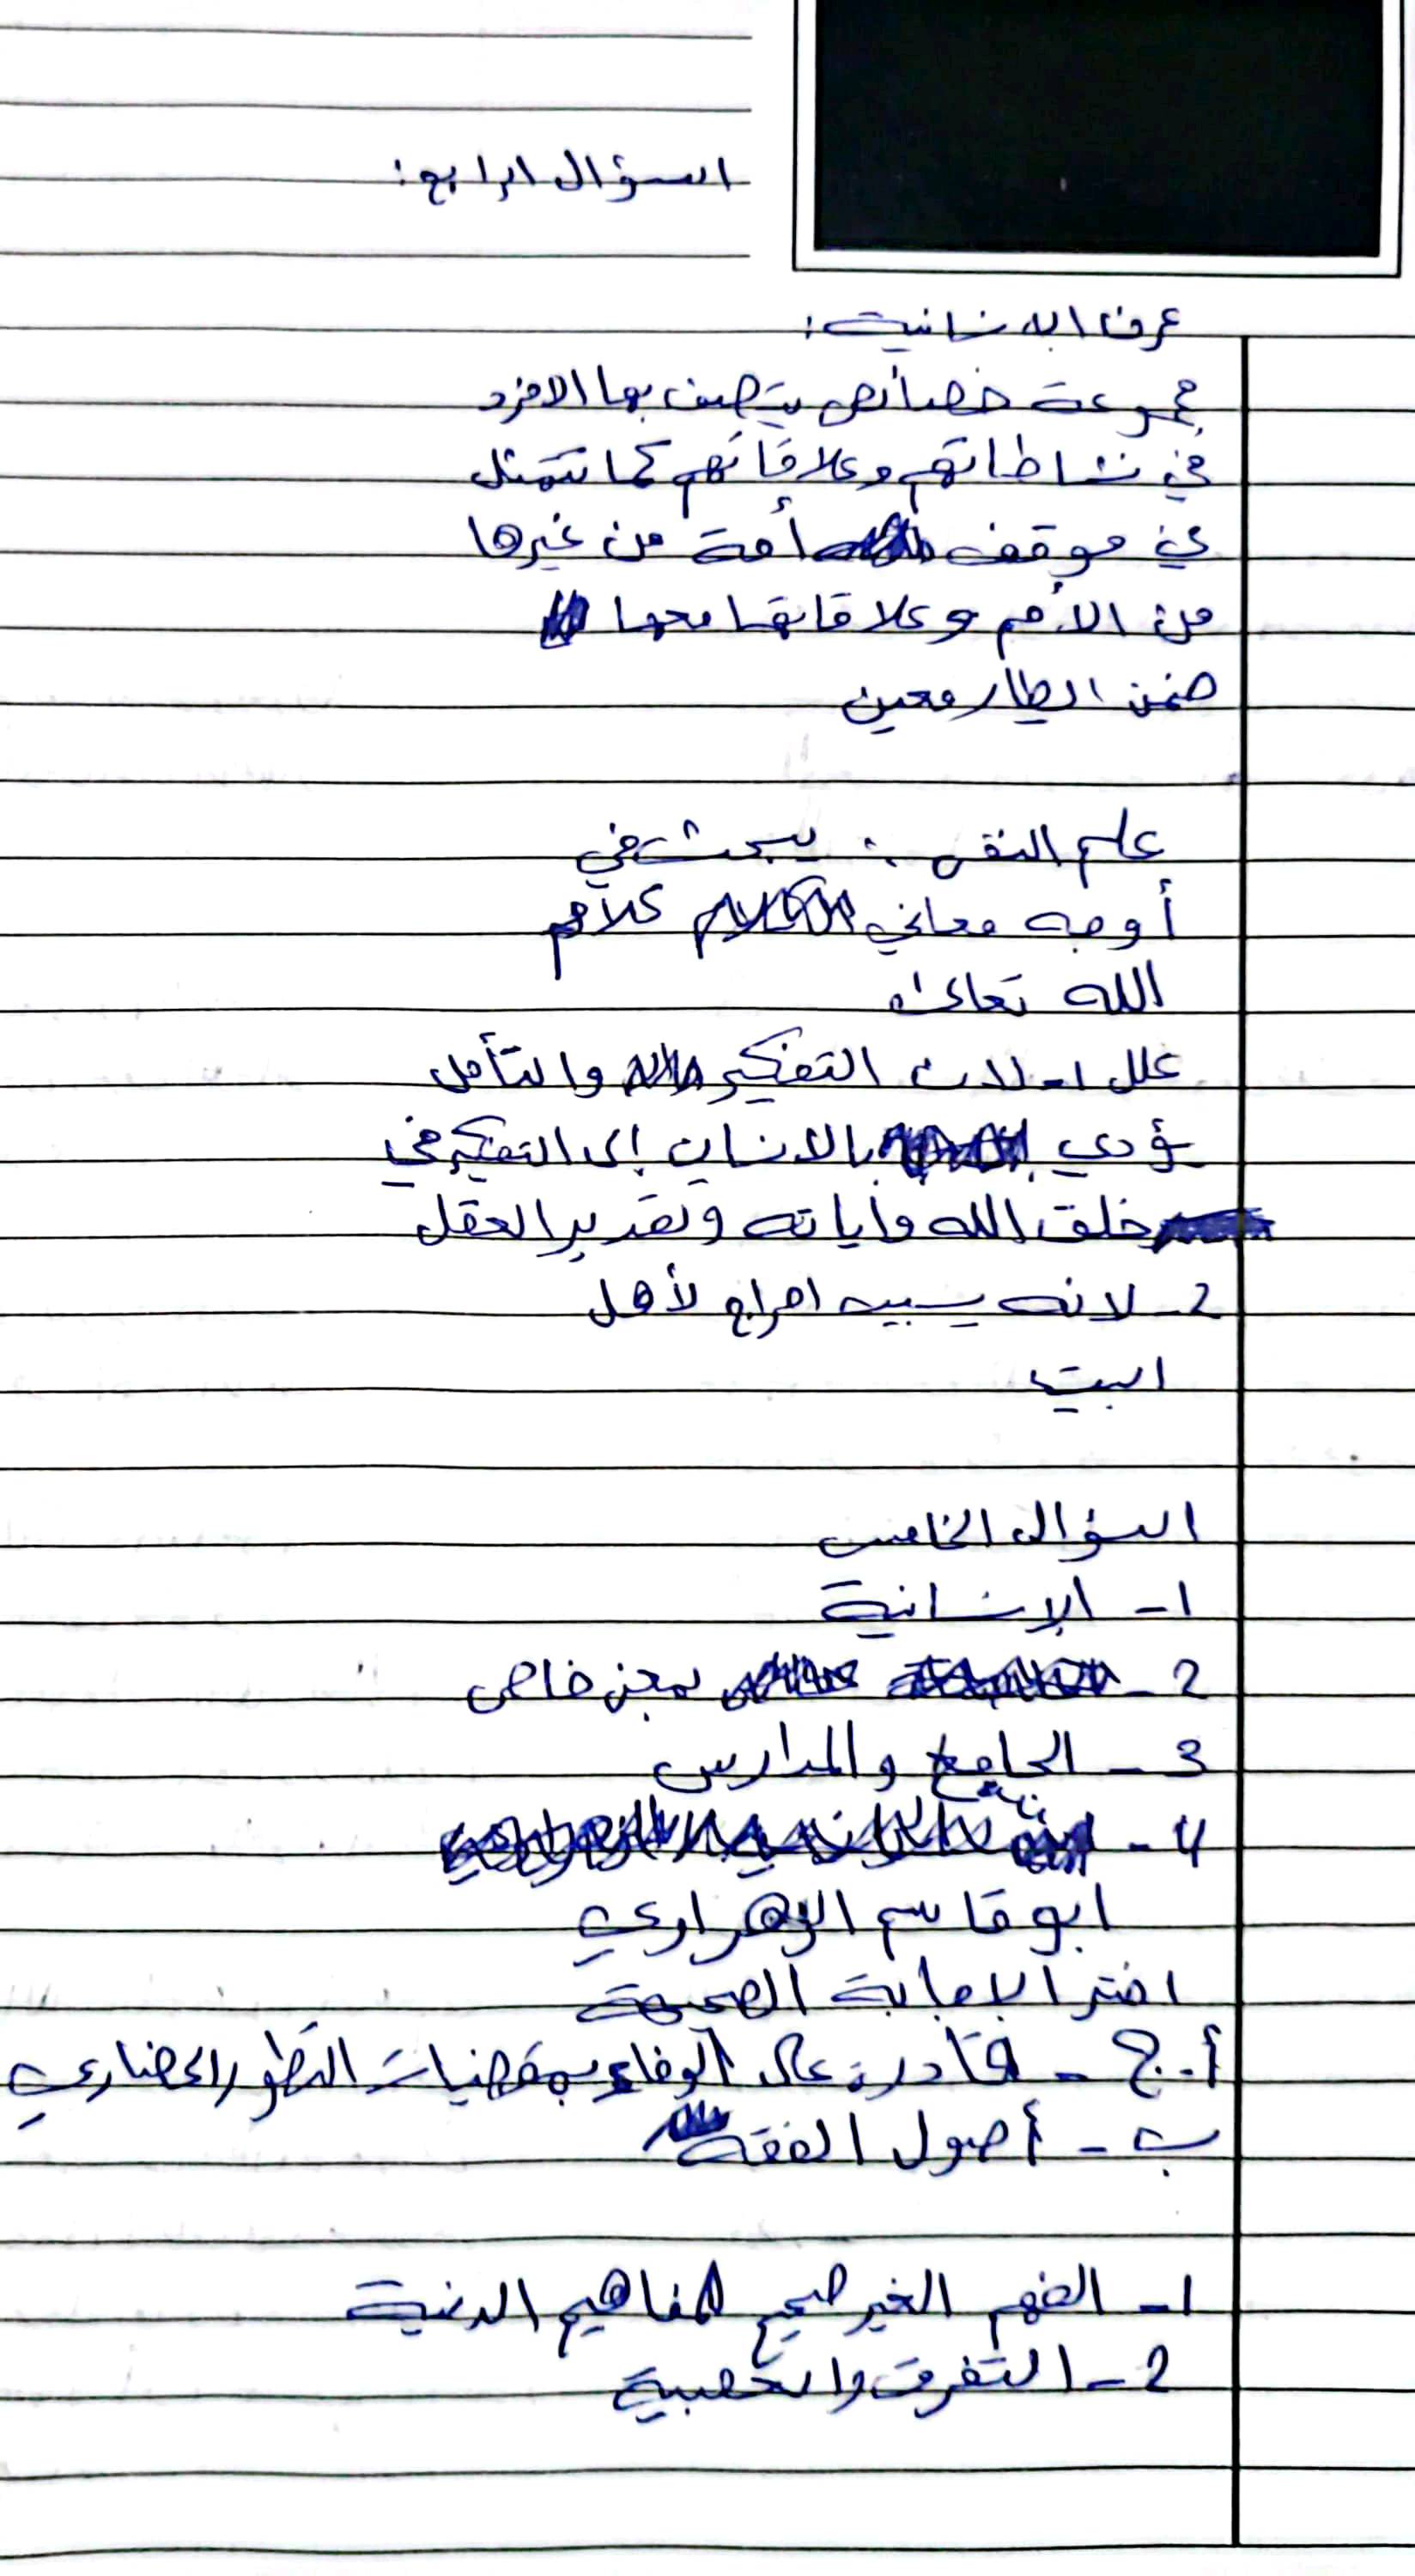 السؤال الرابع:
عرف الانسانية:
مجموعة خصائص يتصف بها الافرد
في نشاطاتهم وعلاقاتهم كما تتمثل
في موقف أمة من غيرها
من الأمم وعلاقاتها معها
ضمن اطار معين
علم النفس : يبحث في
أوجه معاني كلام
الله تعالى
علل 1- لان التفكير والتأمل
يؤدي بالانسان إلى التفكير في
خلق الله وأياته وتقدير العقل
2- لانه يسبب احراج لأهل
البيت
السؤال الخامس
1- الإنسانية
2- بمعنى خاص
3- الجامع والمدارس
4-
ابو قاسم الزهراوي
اختر الإجابة الصحيحة
أ- ج - قادرة على الوفاء بمقضيات التطور الحضاري
ب - أصول الفقه
1- الفهم الغير صحيح لمفاهيم الدينية
2- التفرق والعصبية